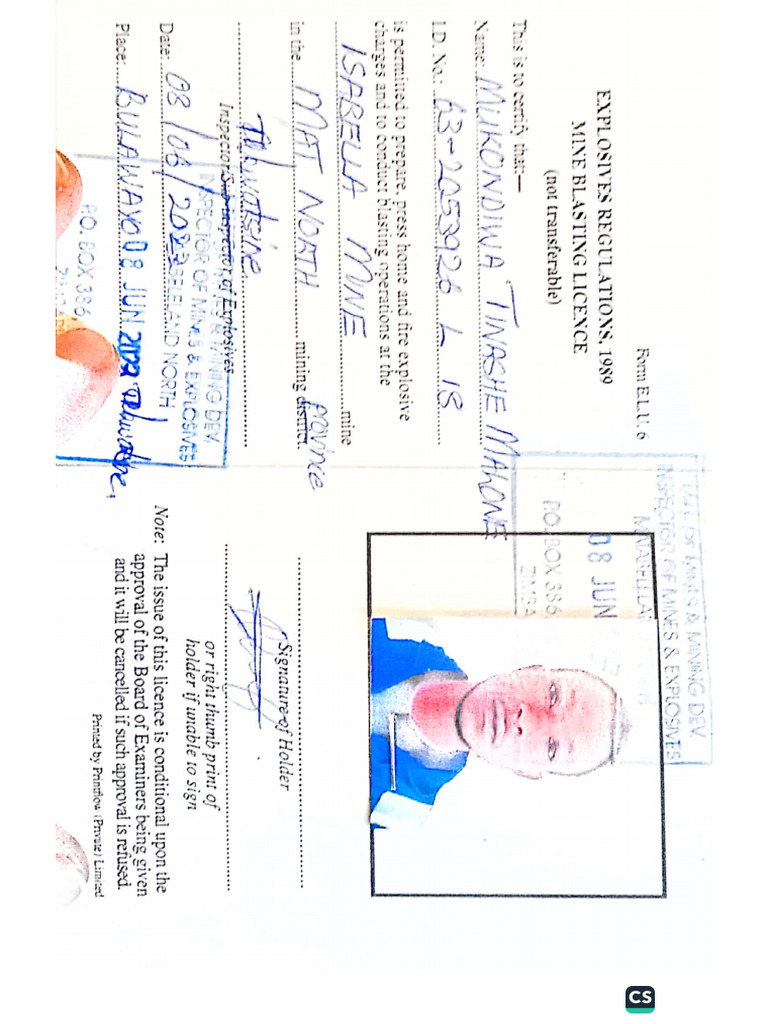 Form E.L.U. 6
EXPLOSIVES REGULATIONS, 1989
MINE BLASTING LICENCE
(not transferable)
This is to certify that:—
Name: MUKONDIWA TINASHE MAKONE
I.D. No.: 63-2053926 L 18
is permitted to prepare, press home and fire explosive
charges and to conduct blasting operations at the
ISABELLA MINE mine
in the MAT NORTH mining district. province
Inspector/Sub-Inspector of Explosives
Date: 08/06/2022
Place: BULAWAYO
MINES & MINING DEV
INSPECTOR OF MINES & EXPLOSIVES
MATABELELAND NORTH
08 JUN 2022
P.O. BOX 386,
OF MINES & MINING DEV
INSPECTOR OF MINES & EXPLOSIVES
08 JUN
P.O. BOX 386,
Signature of Holder
or right thumb print of
holder if unable to sign
Note: The issue of this licence is conditional upon the
approval of the Board of Examiners being given
and it will be cancelled if such approval is refused.
Printed by Printflow (Private) Limited
CS